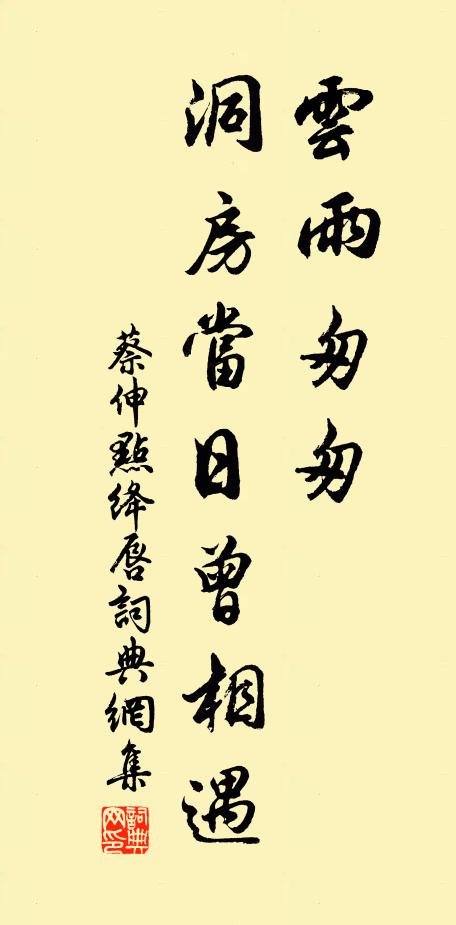 雲雨匆匆
洞房當日曾相遇
蔡伸點絳唇詞典網集
詞典网印